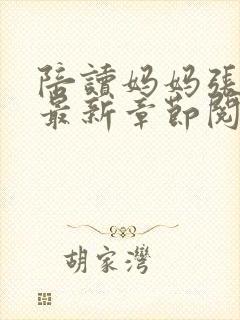 陪讀妈妈張
最新章節閱
胡家灣